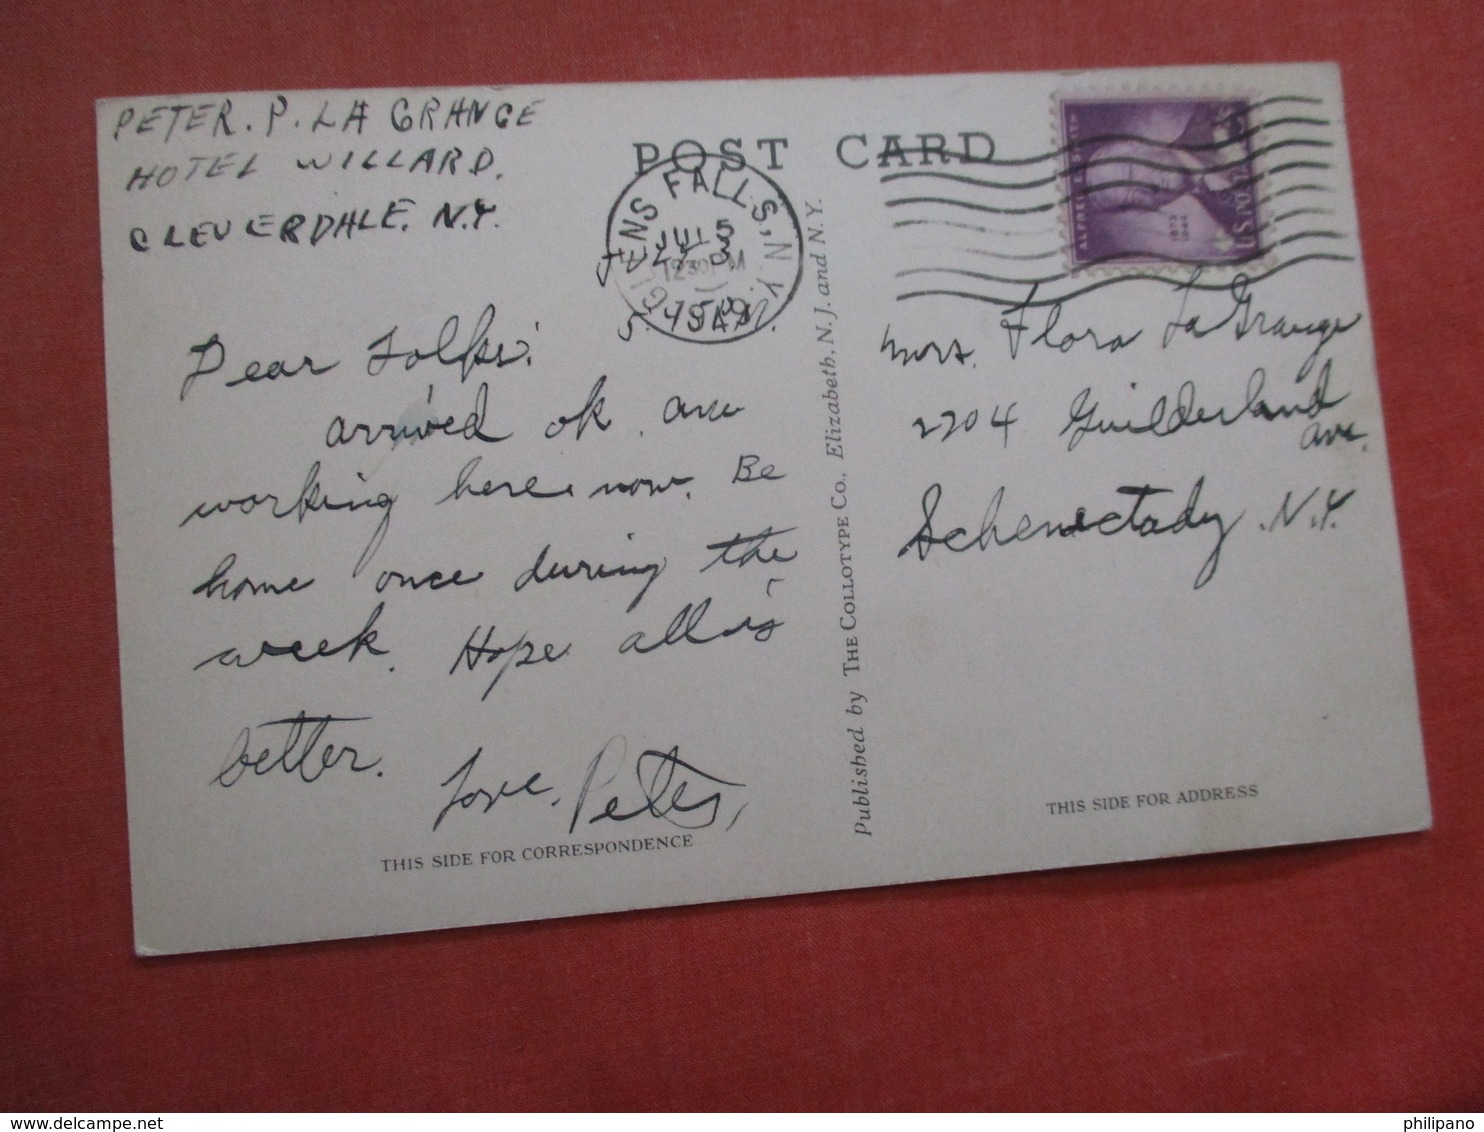 PETER. P. LA GRANGE
HOTEL WILLARD.
CLEVERDALE. N.Y.
POST CARD
ENS FALLS, N.Y.
JUL 5
12 30 PM
JULY 3
5. P.M.
Dear Folks:
arrived ok. am
working here now. Be
home once during the
week. Hope all is
better.
Love, Peter,
THIS SIDE FOR CORRESPONDENCE
Published by THE COLLOTYPE CO., Elizabeth, N. J. and N. Y.
ALFRED E. SMITH
1873
1944
U.S. POSTAGE
Mrs. Flora La Grange
2204 Guilderland
ave.
Schenectady, N.Y.
THIS SIDE FOR ADDRESS
philipano
www.delcampe.net